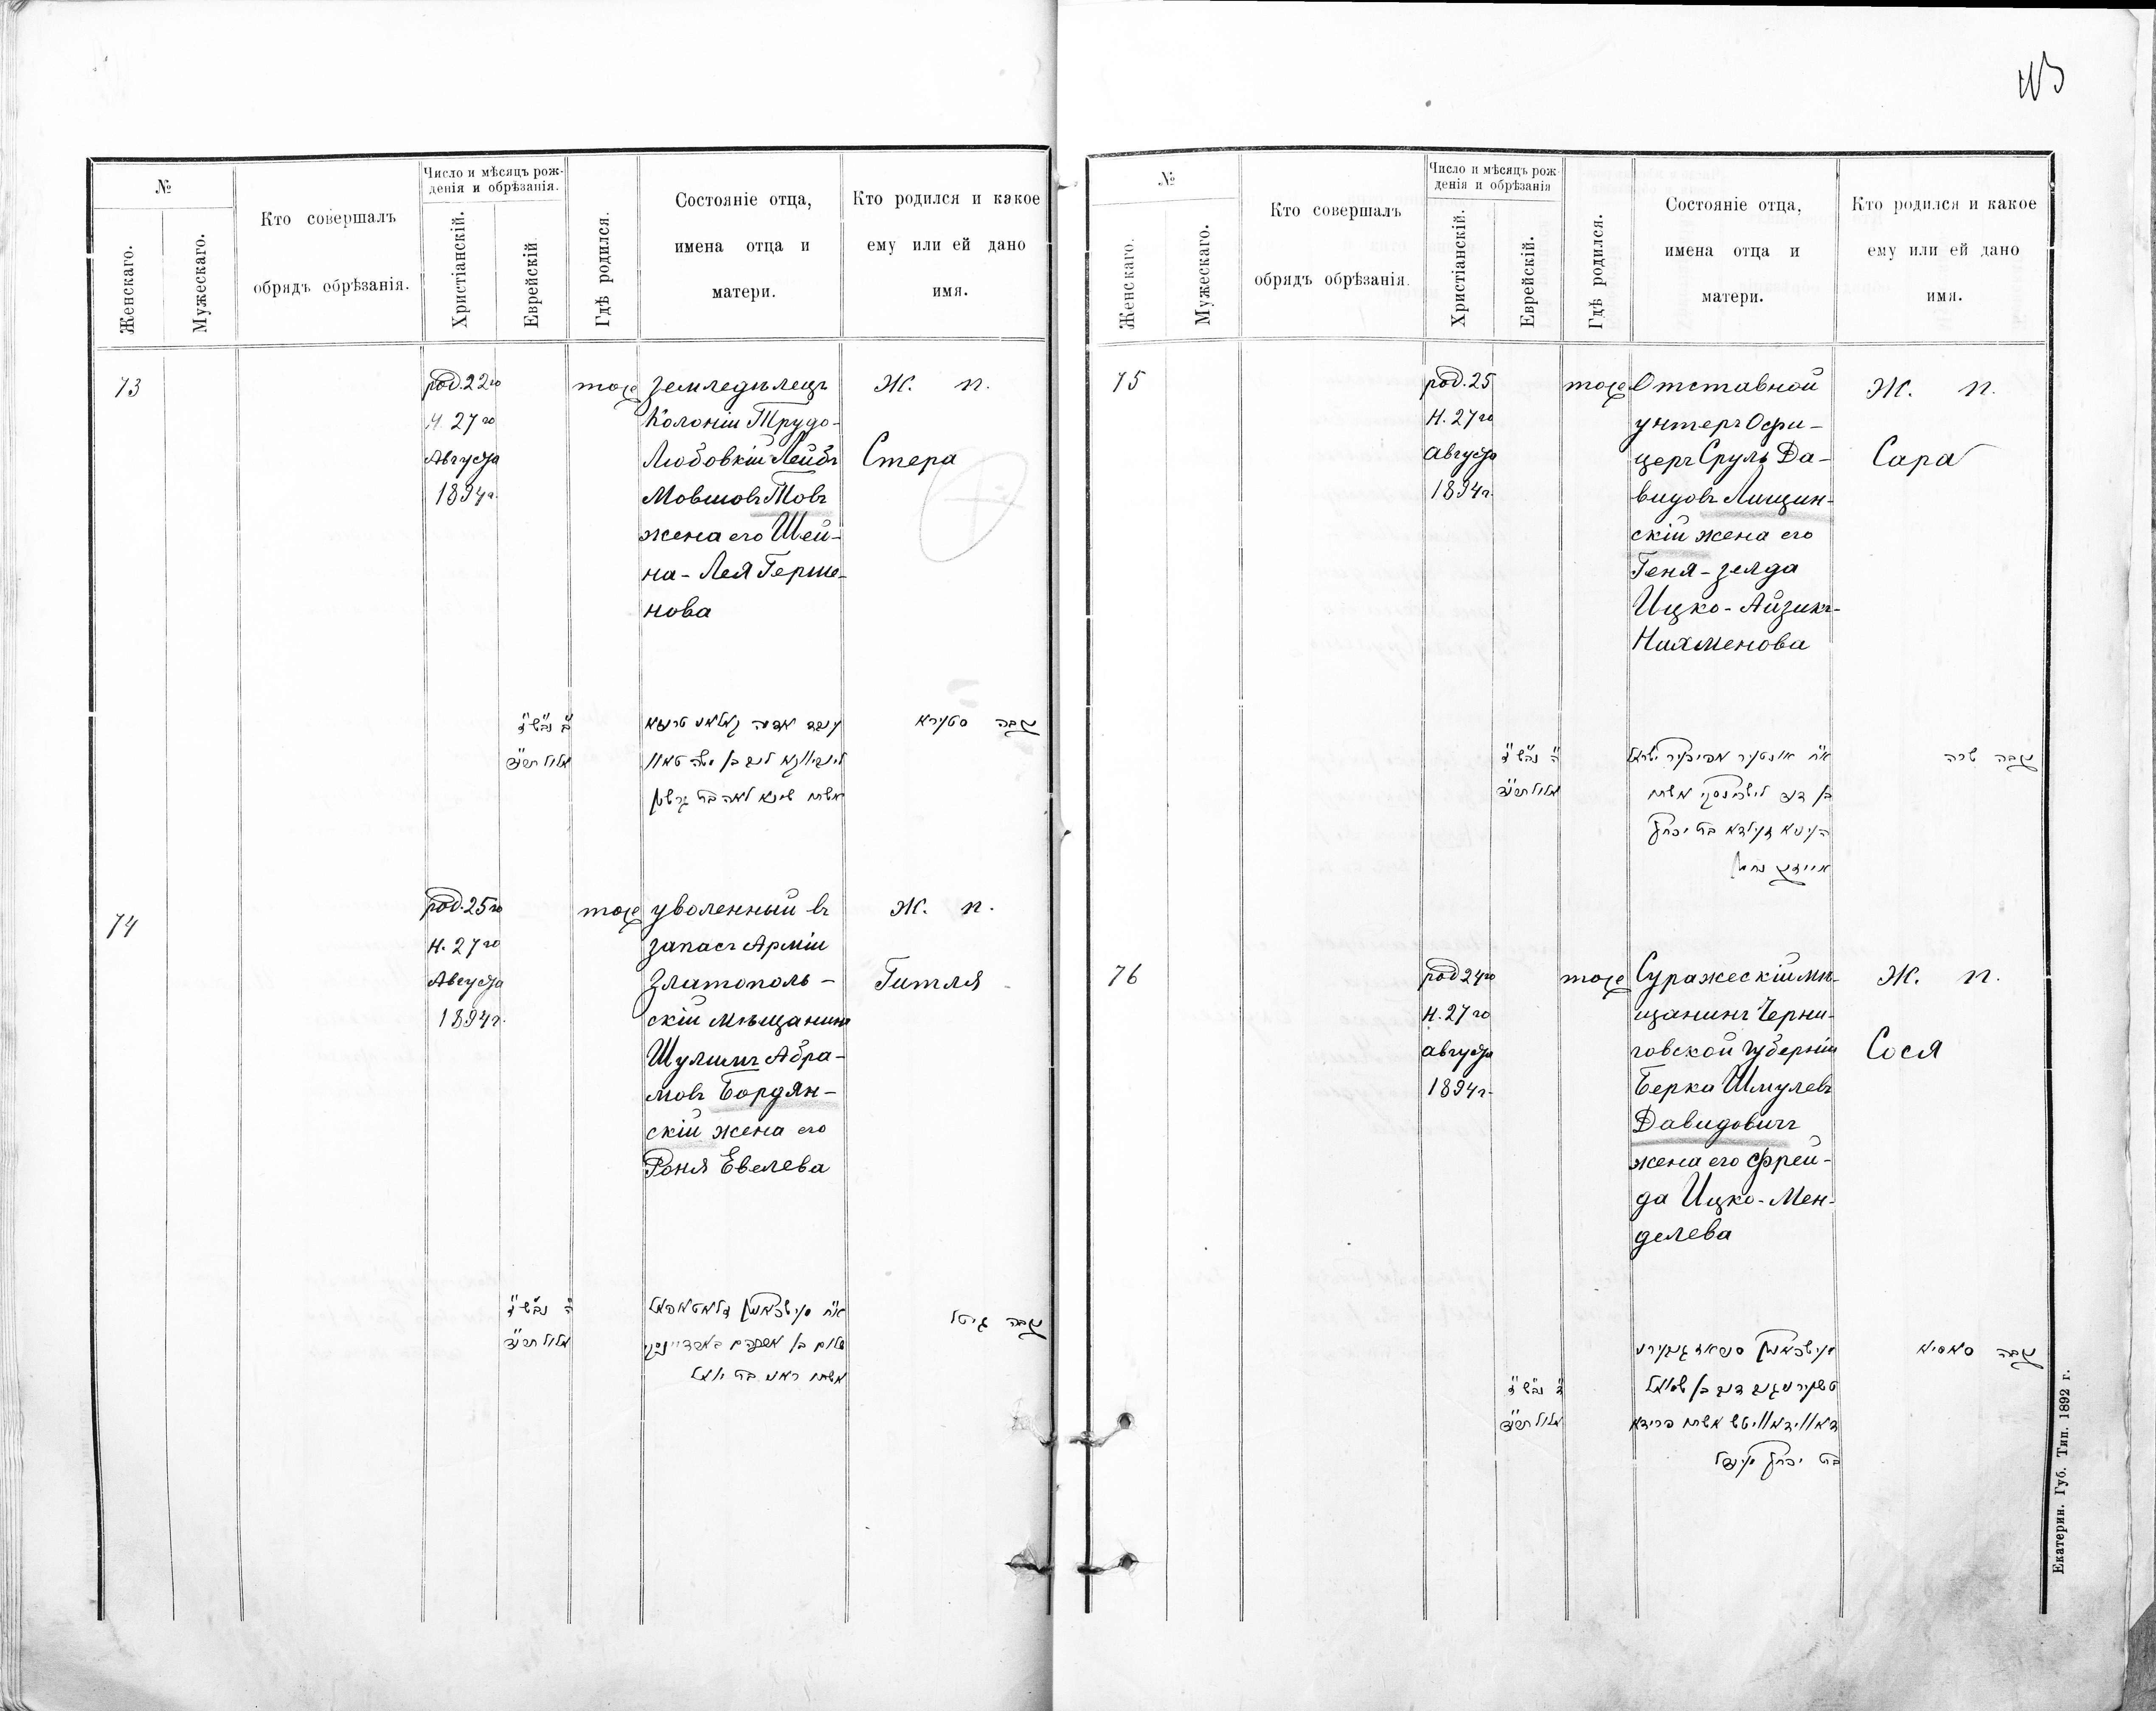 113
№
Женскаго.
Мужескаго.
Кто совершалъ
обрядъ обрѣзанія.
Число и мѣсяцъ рож-
денія и обрѣзанія.
Христіанскій.
Еврейскій.
Гдѣ родился.
Состояніе отца,
имена отца и
матери.
Кто родился и какое
ему или ей дано
имя.
73
род. 22го
Н. 27го
Августа
1894г.
тоже
Земледѣлецъ
Колоніи Трудо-
Любовкій Лейбъ
Мовшовъ Товъ
жена его Шей-
на-Лея Герше-
нова
Ж. п.
Стера
נקבה סטירא
אלול תרנ״ד
74
род. 25го
Н. 27го
Августа
1894г.
тоже
уволенный въ
запасъ Арміи
Златополь-
скій мѣщанинъ
Шулимъ Абра-
мовъ Бордян-
скій жена его
Роня Евелева
Ж. п.
Гитля
נקבה גיטל
אלול תרנ״ד
№
Женскаго.
Мужескаго.
Кто совершалъ
обрядъ обрѣзанія.
Число и мѣсяцъ рож-
денія и обрѣзанія
Христіанскій.
Еврейскій.
Гдѣ родился.
Состояніе отца,
имена отца и
матери.
Кто родился и какое
ему или ей дано
имя.
75
род. 25
Н. 27го
Августа
1894г.
тоже
Отставной
унтеръ Офи-
церъ Сруль Да-
видовъ Лищин-
скій жена его
Геня-Зелда
Ицко-Айзикъ-
Нахменова
Ж. п.
Сара
נקבה שרה
אלול תרנ״ד
76
род 24го
Н. 27го
августа
1894г.
тоже
Суражескій мѣ-
щанинъ Черни-
говской губерніи
Берка Шмулевъ
Давидовичъ
жена его Фрей-
да Ицко-Мен-
делева
Ж. п.
Сося
נקבה סאסיא
אלול תרנ״ד
Екатерин. Губ. Тип. 1892 г.